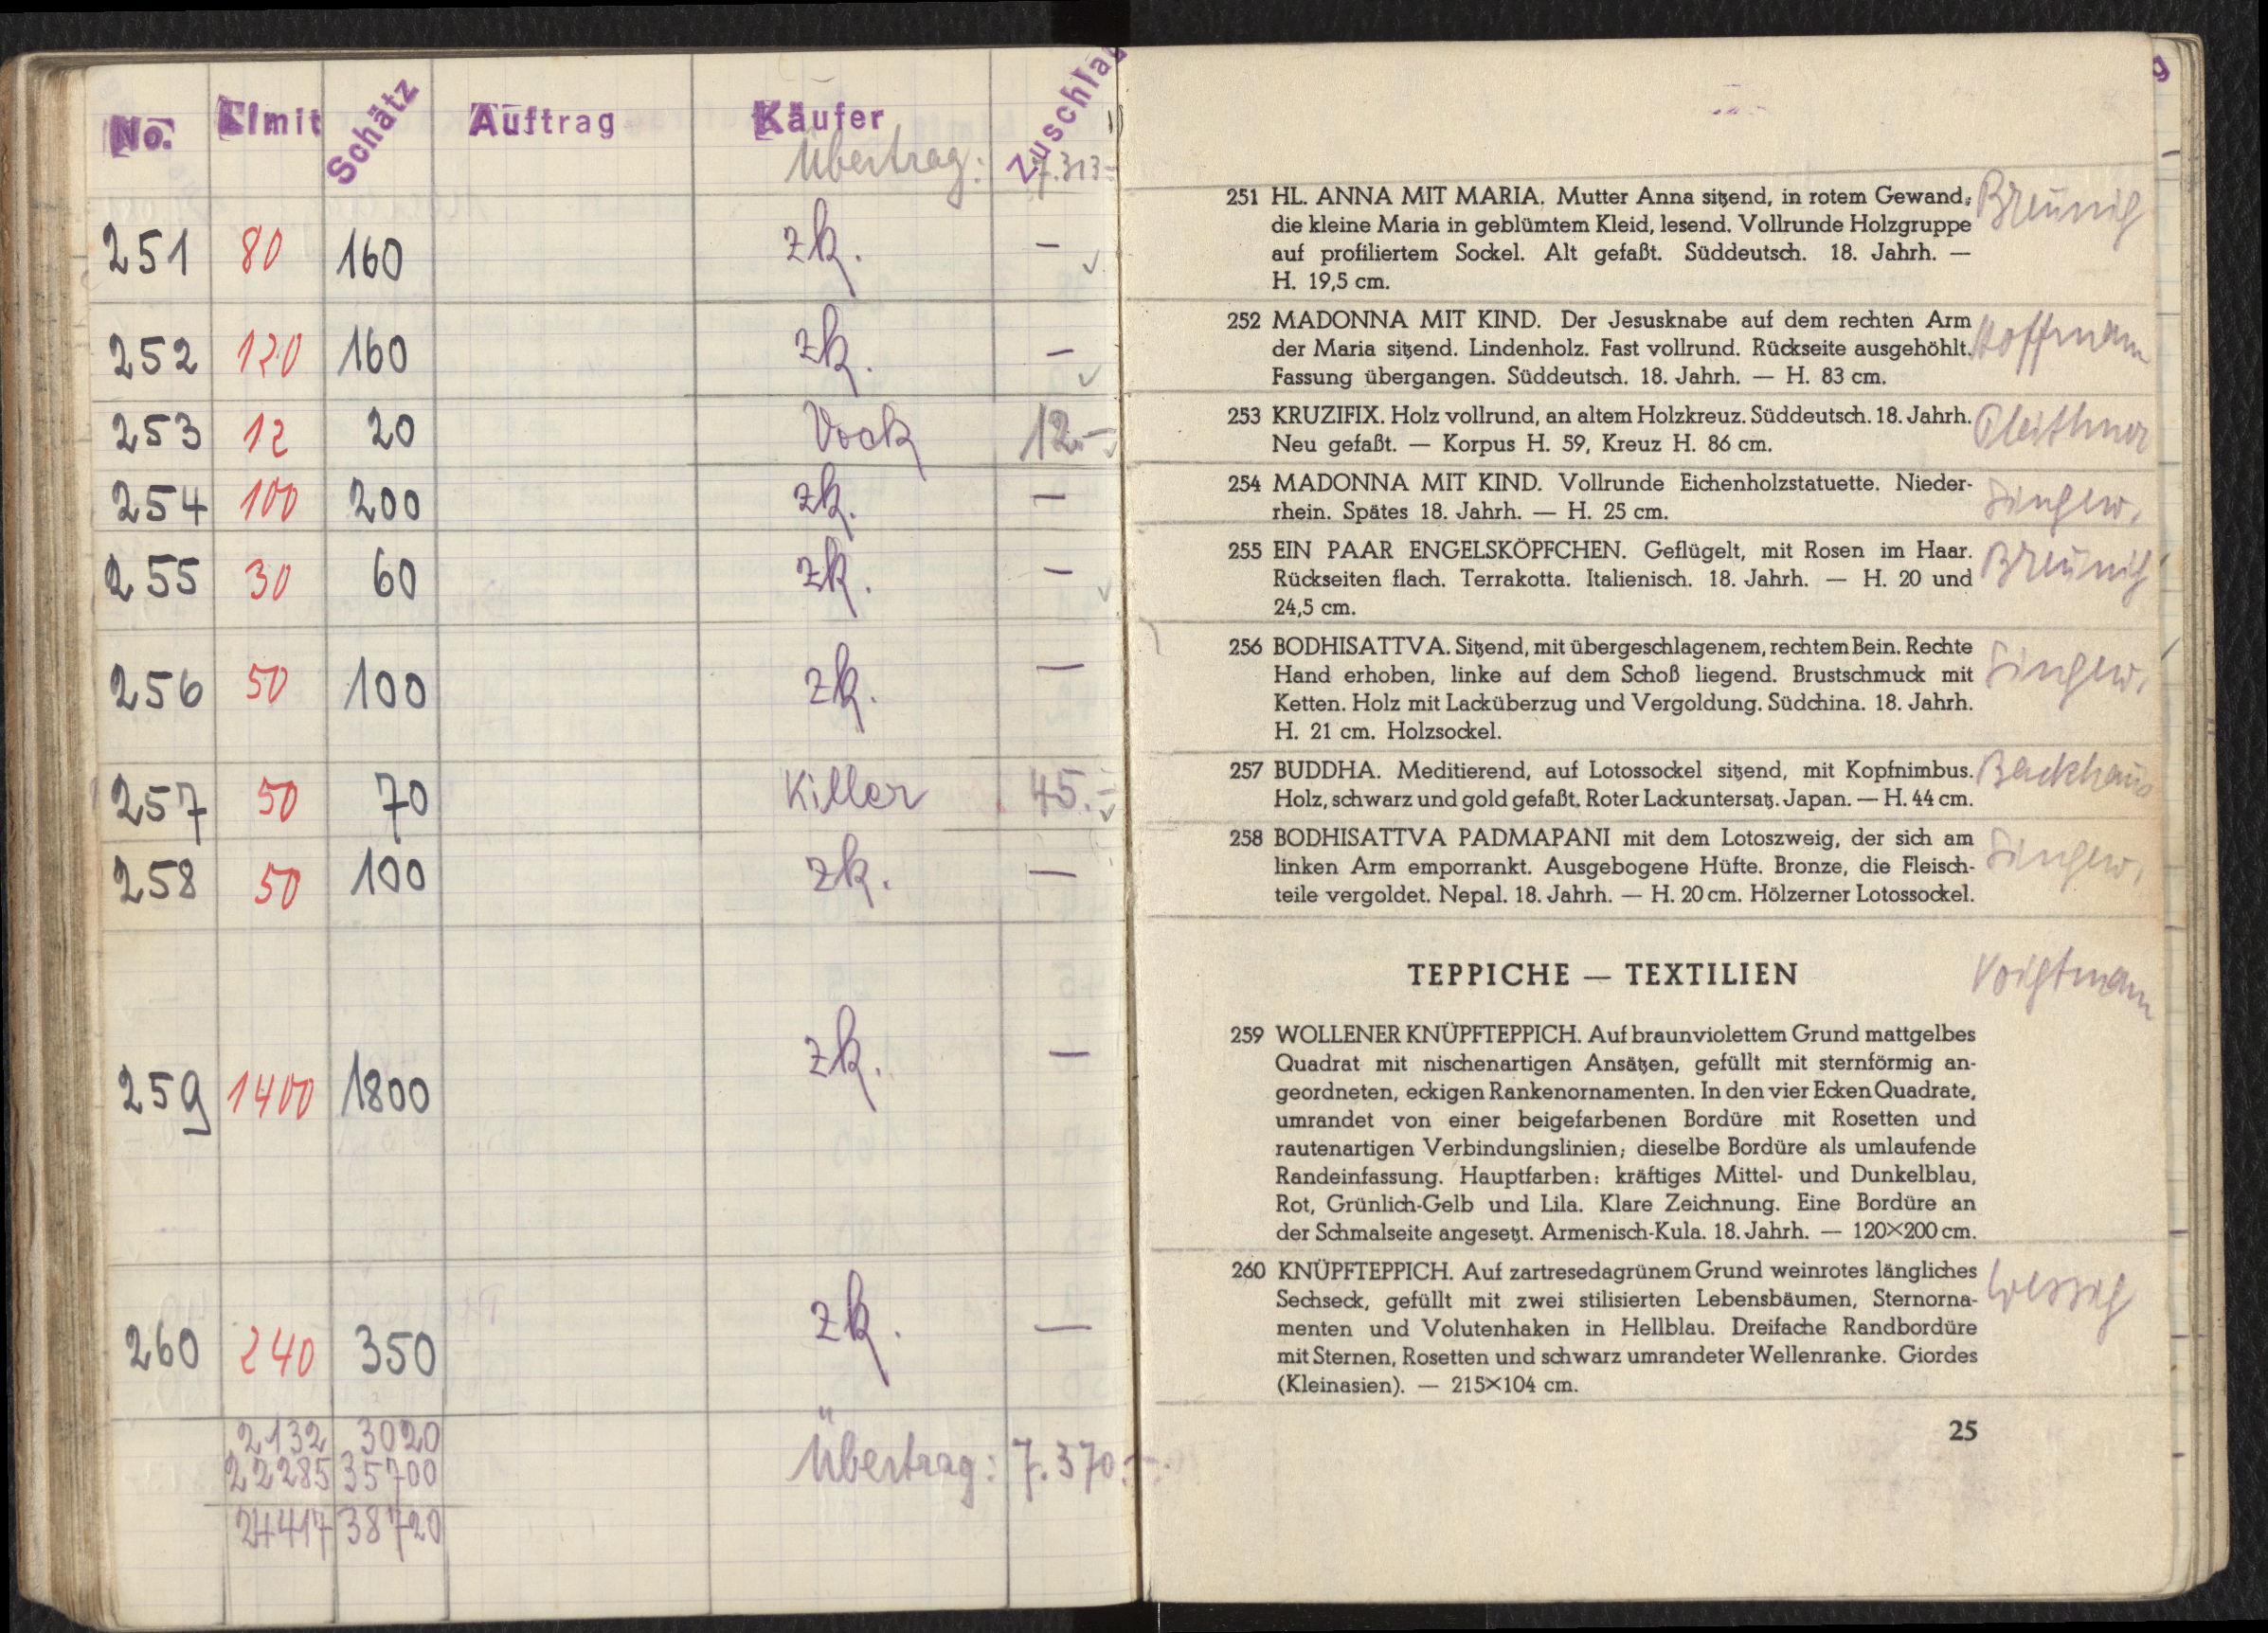 No. Limit Schätz Auftrag Käufer Zuschlag
Übertrag: 7.313.-
251 80 160 zk. —
252 120 160 zk. —
253 12 20 Vock 12.-
254 100 200 zk. —
255 30 60 zk. —
256 50 100 zk. —
257 50 70 Killer 45.-
258 50 100 zk. —
259 1400 1800 zk. —
260 240 350 zk. —
2132 3020
22285 35700 Übertrag: 7.370.-
24417 38720
251 HL. ANNA MIT MARIA. Mutter Anna sitzend, in rotem Gewand; Breunig
die kleine Maria in geblümtem Kleid, lesend. Vollrunde Holzgruppe
auf profiliertem Sockel. Alt gefaßt. Süddeutsch. 18. Jahrh. —
H. 19,5 cm.
252 MADONNA MIT KIND. Der Jesusknabe auf dem rechten Arm Hoffmann
der Maria sitzend. Lindenholz. Fast vollrund. Rückseite ausgehöhlt.
Fassung übergangen. Süddeutsch. 18. Jahrh. — H. 83 cm.
253 KRUZIFIX. Holz vollrund, an altem Holzkreuz. Süddeutsch. 18. Jahrh.
Neu gefaßt. — Korpus H. 59, Kreuz H. 86 cm.
254 MADONNA MIT KIND. Vollrunde Eichenholzstatuette. Nieder-
rhein. Spätes 18. Jahrh. — H. 25 cm.
255 EIN PAAR ENGELSKÖPFCHEN. Geflügelt, mit Rosen im Haar. Breunig
Rückseiten flach. Terrakotta. Italienisch. 18. Jahrh. — H. 20 und
24,5 cm.
256 BODHISATTVA. Sitzend, mit übergeschlagenem, rechtem Bein. Rechte
Hand erhoben, linke auf dem Schoß liegend. Brustschmuck mit
Ketten. Holz mit Lacküberzug und Vergoldung. Südchina. 18. Jahrh.
H. 21 cm. Holzsockel.
257 BUDDHA. Meditierend, auf Lotossockel sitzend, mit Kopfnimbus. Backhaus
Holz, schwarz und gold gefaßt. Roter Lackuntersatz. Japan. — H. 44 cm.
258 BODHISATTVA PADMAPANI mit dem Lotoszweig, der sich am
linken Arm emporrankt. Ausgebogene Hüfte. Bronze, die Fleisch-
teile vergoldet. Nepal. 18. Jahrh. — H. 20 cm. Hölzerner Lotossockel.
TEPPICHE — TEXTILIEN Voigtmann
259 WOLLENER KNÜPFTEPPICH. Auf braunviolettem Grund mattgelbes
Quadrat mit nischenartigen Ansätzen, gefüllt mit sternförmig an-
geordneten, eckigen Rankenornamenten. In den vier Ecken Quadrate,
umrandet von einer beigefarbenen Bordüre mit Rosetten und
rautenartigen Verbindungslinien; dieselbe Bordüre als umlaufende
Randeinfassung. Hauptfarben: kräftiges Mittel- und Dunkelblau,
Rot, Grünlich-Gelb und Lila. Klare Zeichnung. Eine Bordüre an
der Schmalseite angesetzt. Armenisch-Kula. 18. Jahrh. — 120×200 cm.
260 KNÜPFTEPPICH. Auf zartresedagrünem Grund weinrotes längliches
Sechseck, gefüllt mit zwei stilisierten Lebensbäumen, Sternorna-
menten und Volutenhaken in Hellblau. Dreifache Randbordüre
mit Sternen, Rosetten und schwarz umrandeter Wellenranke. Giordes
(Kleinasien). — 215×104 cm.
25